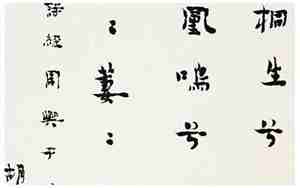 桐生兮
凰鳴兮
：萋：
詩經周興于
胡